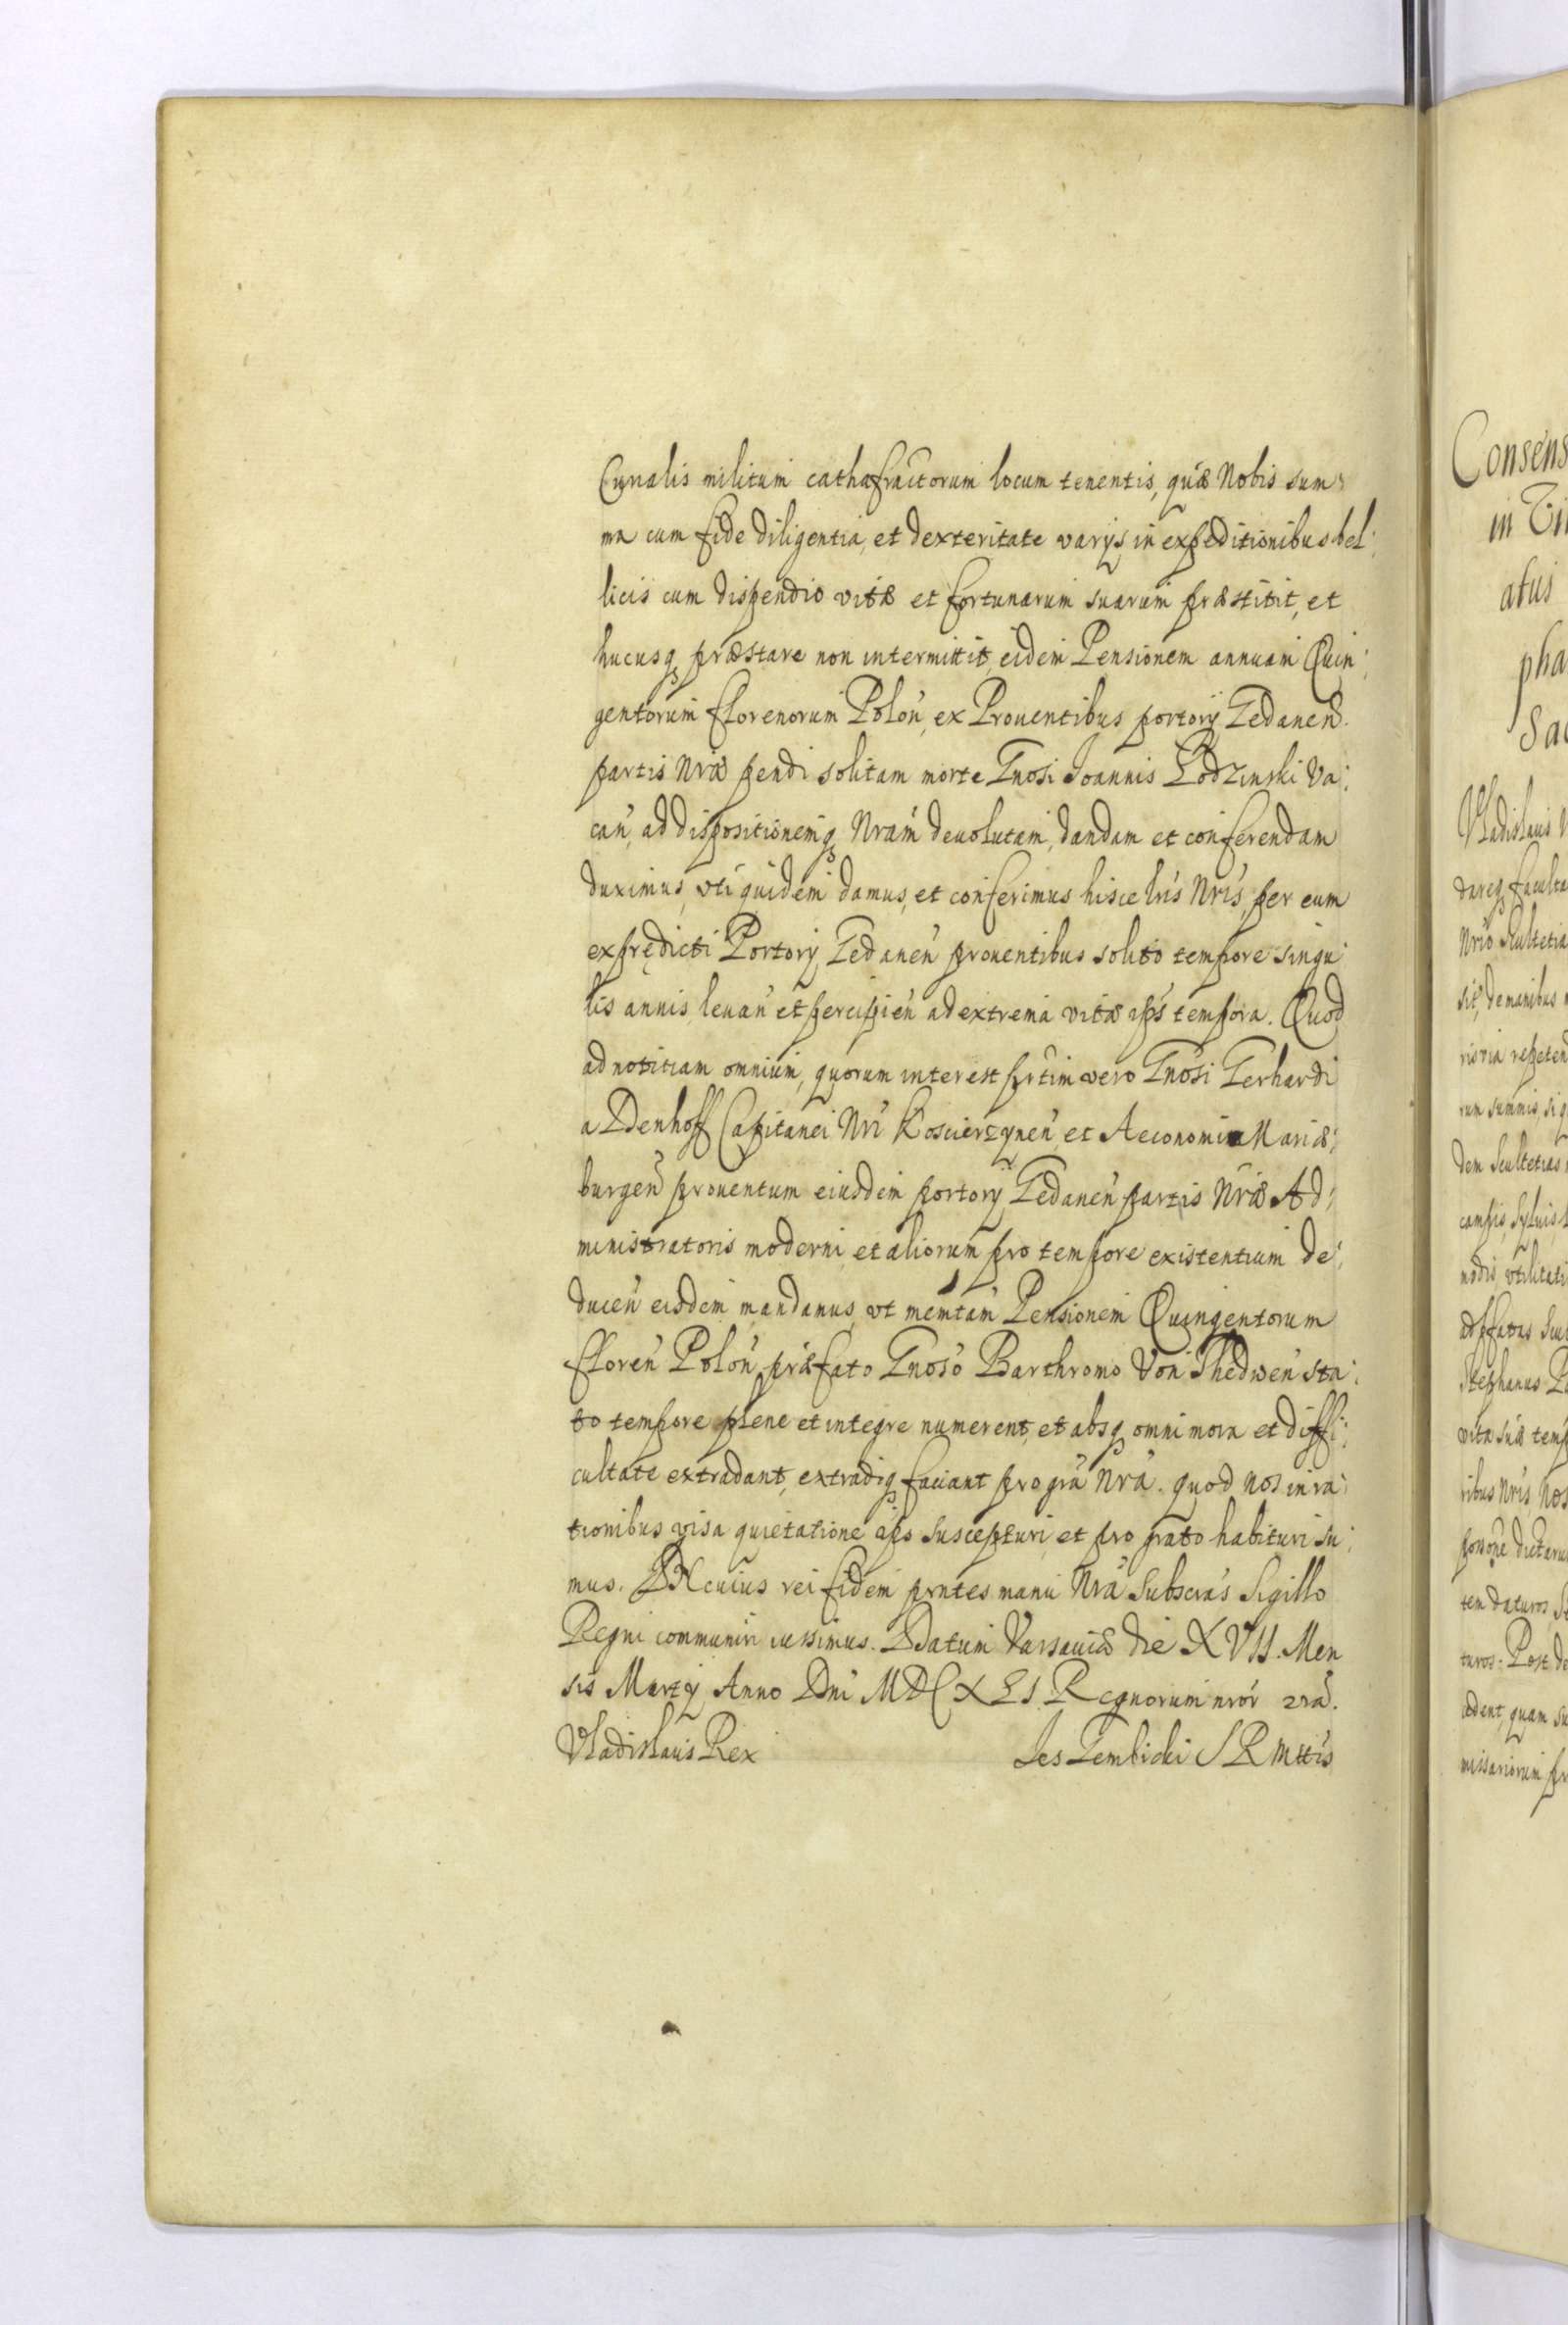 Curialis militum cathafractorum locum tenentis, quæ Nobis sum:
ma cum fide diligentia, et dexteritate varijs in expeditionibus bel:
licis cum dispendio vitæ et fortunarum suarum præstitit, et
hucusq præstare non intermittit, eidem Pensionem annuam Quin:
gentorum florenorum Polon, ex Prouentibus portorij Gedanen.
partis Nræ pendi solitam morte Gnosi Joannis Lodzinski va:
can, ad dispositionemq Nram deuolutam, dandam et conferendam
duximus, vti quidem damus, et conferimus hisce lris Nris, per eum
ex prędicti Portorij Gedanen prouentibus solito tempore singu
lis annis, leuan et percipien ad extrema vitæ ips tempora. Quod
ad notitiam omnium, quorum interest prtim vero Gnosi Gerhardi
a Denhoff Capitanei Nri Koscierzynen et Aeconomiæ Mariæ:
burgen prouentum eiusdem portorij Gedanen partis Nræ Ad:
ministratoris moderni, et aliorum pro tempore existentium de:
ducen eisdem mandamus, vt memtam Pensionem Quingentorum
floren Polon præfato Gnoso Barthromo Von Thedwen sta:
to tempore plene et integre numerent, et absq omni mora et diffi:
cultate extradant, extradiq faciant pro gra Nra. quod nos in ra:
tionibus visa quietatione ips suscepturi et pro grato habituri su:
mus. IN cuius rei fidem prntes manu Nra Subscras Sigillo
Regni communiri iussimus. Datum Varsauiæ die XVII. Men
sis Martij Anno Dni MDCXLI. Regnorum nror
Vladislaus Rex Jes Gembicki S R Mttis
Consens
in
atus
pha
Sac
Vladislaus
dareq faculta
Nrio Scultetia
sit, de manibus
dem Scultetias
campis, syluis,
Stephanus
vita suæ temp
ribus Nris nos
ten daturos,
turos. Post
quam su
missariorum pr